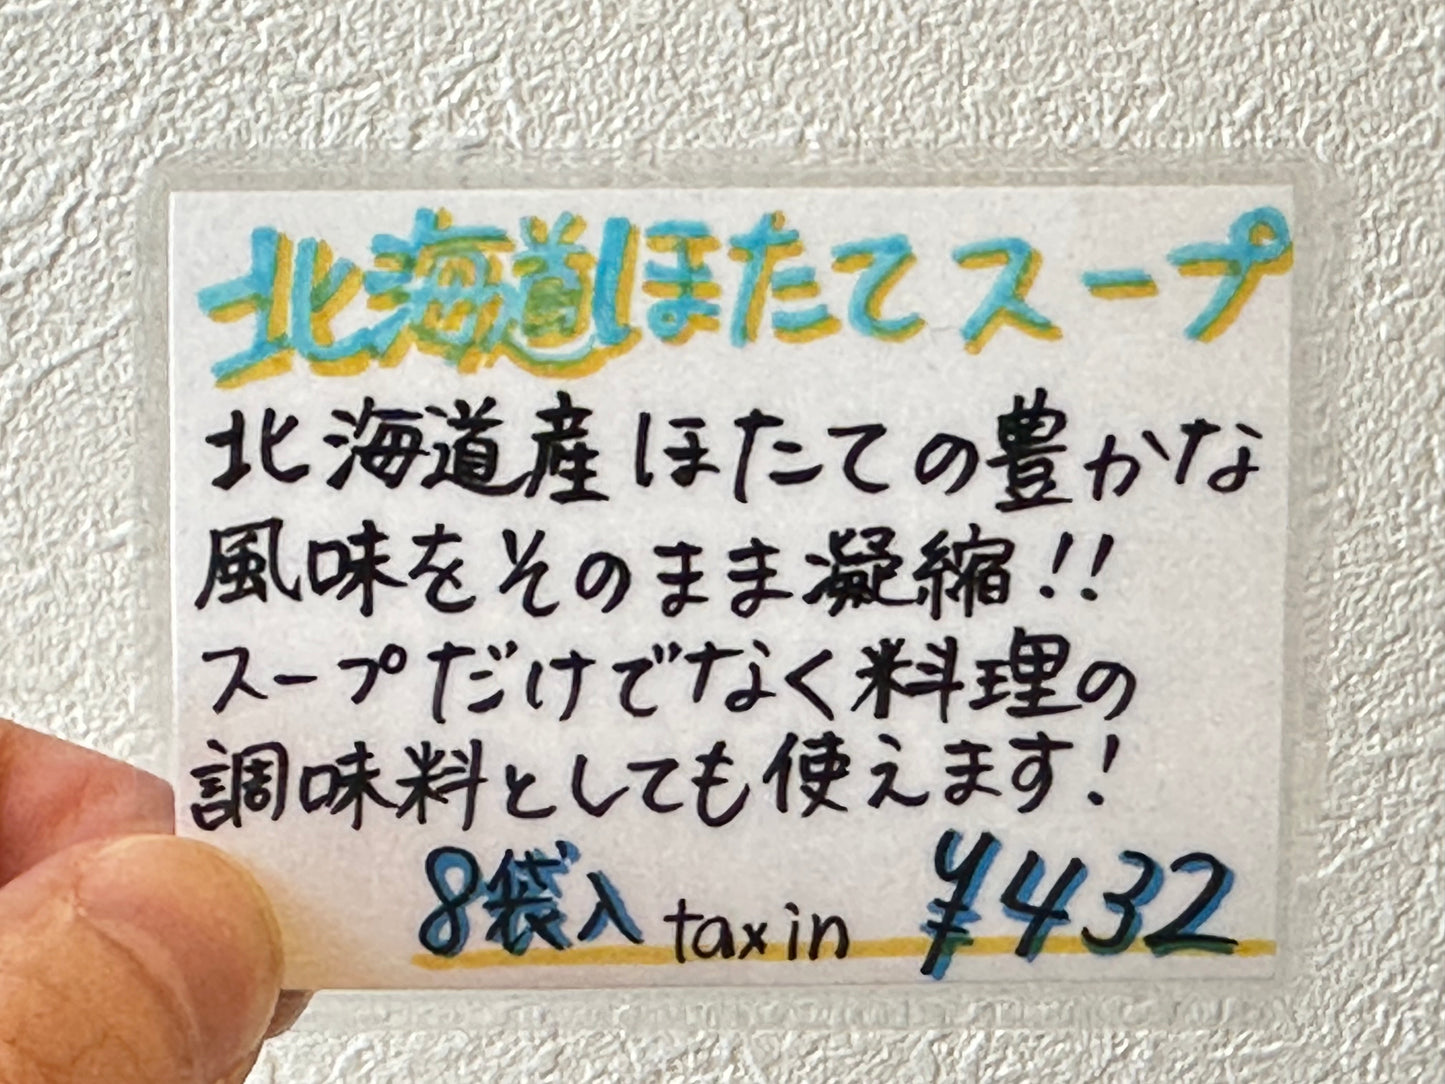 北海道ほたてスープ
北海道産ほたての豊かな
風味をそのまま凝縮!!
スープだけでなく料理の
調味料としても使えます!
8袋入 tax in ¥432